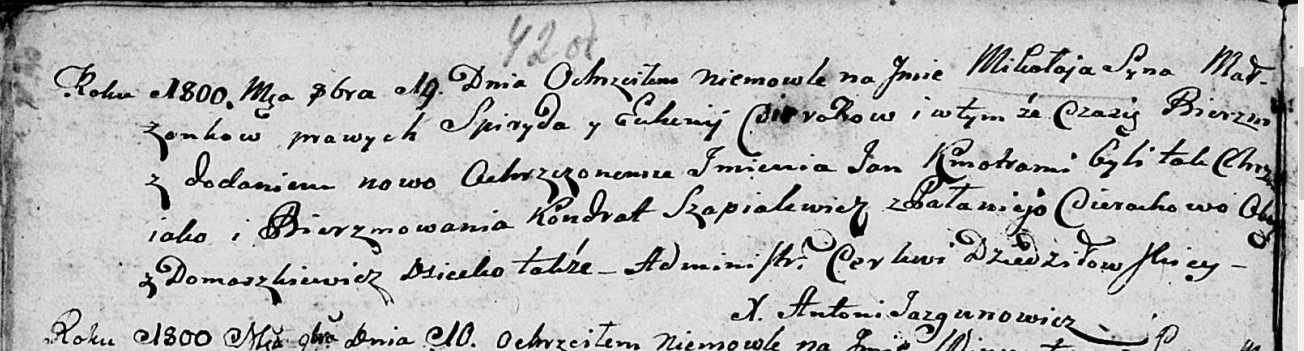 42 od
Roku 1800. Mca 8bra 19. Dnia Ochrzciłem niemowle na Jmie Mikołaja Syna Mał-
żonkow prawych Spiryda y Euhenij Cierakow i wtym że Czasie Bierzm
z dodaniem nowo Ochrzczonemu Jmienia Jan Kmotrami byli tak Chrz
iako i Bierzmowania Kondrat Szapialewicz z Pałaniejo Cierachowo
z Domaszkiewicz Dziecko także – Administr. Cerkwi Dziedziłowskiey –
X. Antoni Jazgunowicz
Roku 1800 Mca 9bra Dnia 10. ochrzciłem niemowle na Jmie